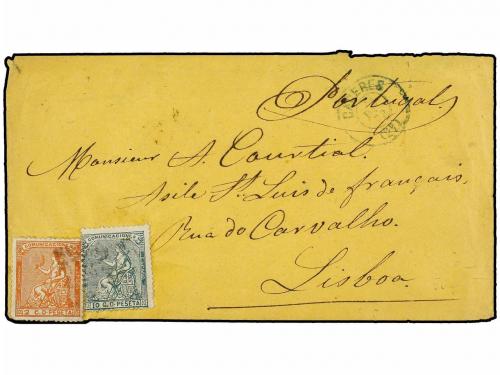 CACERES
Portugal
Monsieur A. Courtial.
Asile St. Luis de français,
Rua do Carvalho.
Lisboa.
COMUNICACIONES
2 C. D. PESETA
COMUNICACIONES
10 C. D. PESETA